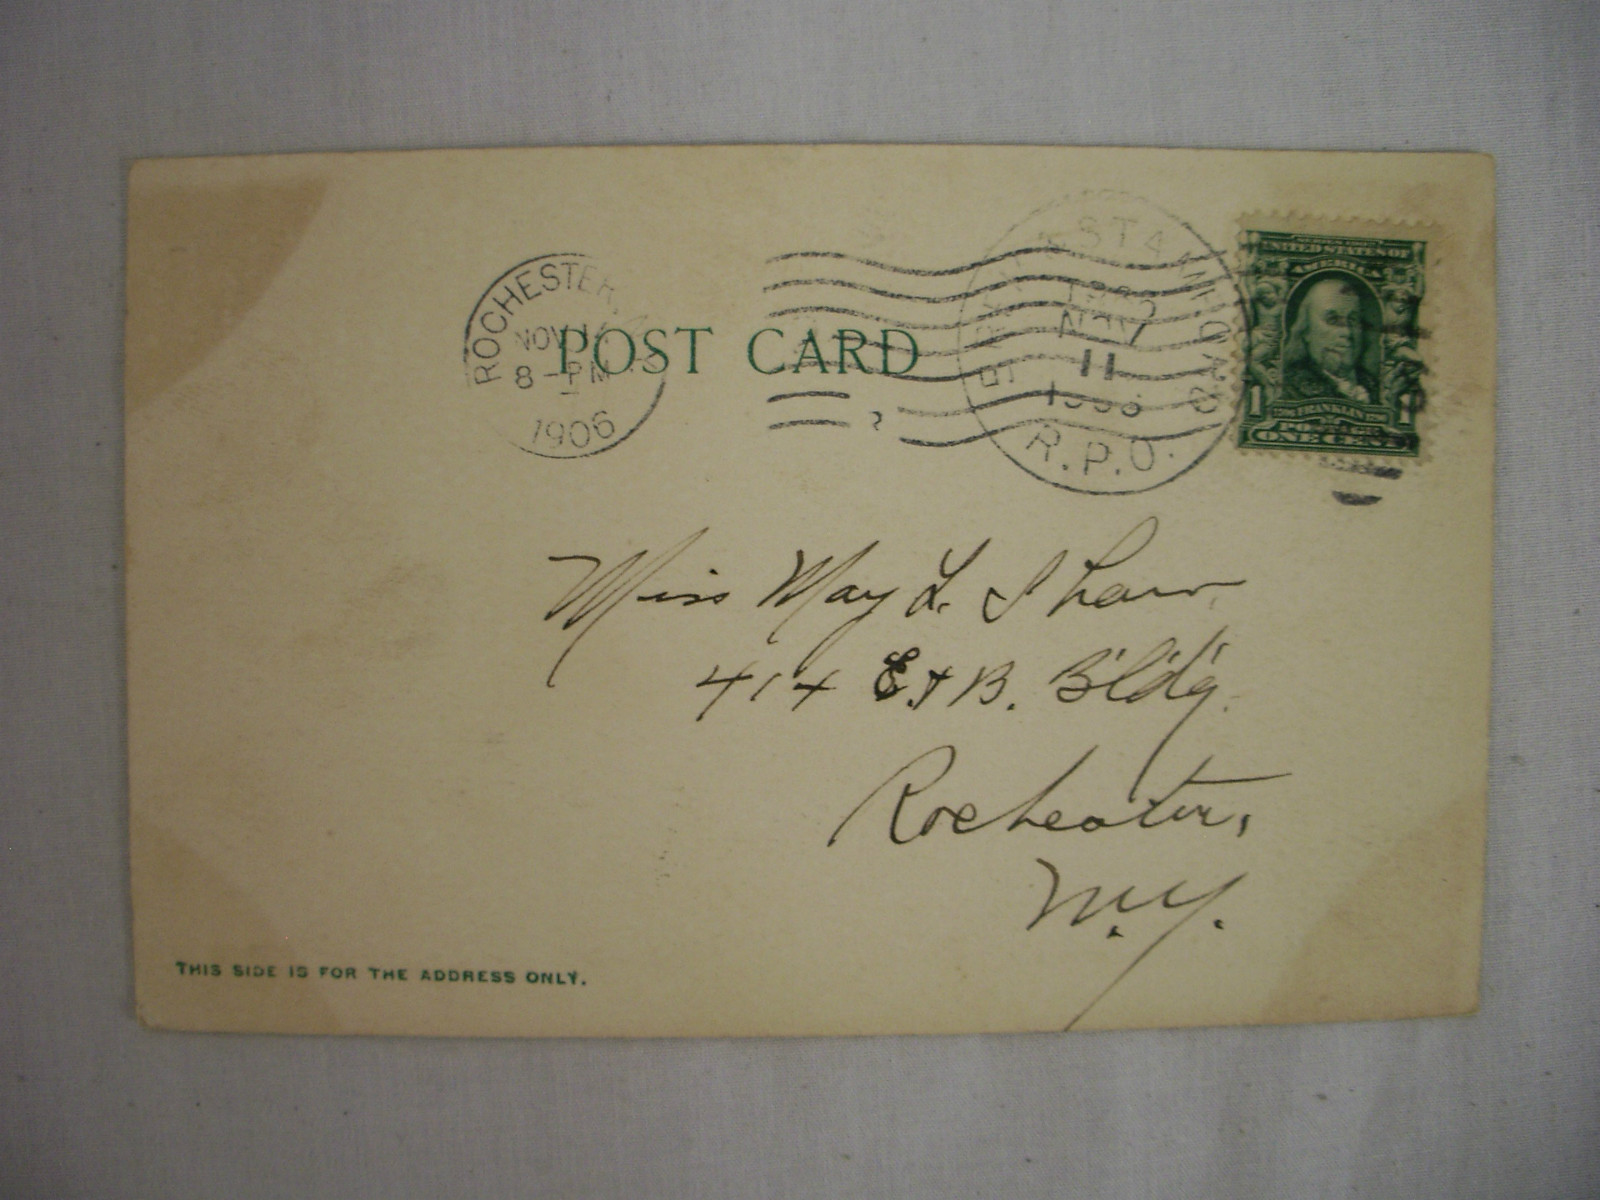 ROCHESTER, N.Y.
NOV 11
8-PM
1906
POST CARD
EST & 
NOV
11
R.P.O.
SERIES 1902
UNITED STATES OF
AMERICA
1 1706 FRANKLIN 1790 1
POSTAGE
ONE CENT
Miss May L. Shaw,
414 E. & B. B'ld'g.
Rochester,
N.Y.
THIS SIDE IS FOR THE ADDRESS ONLY.